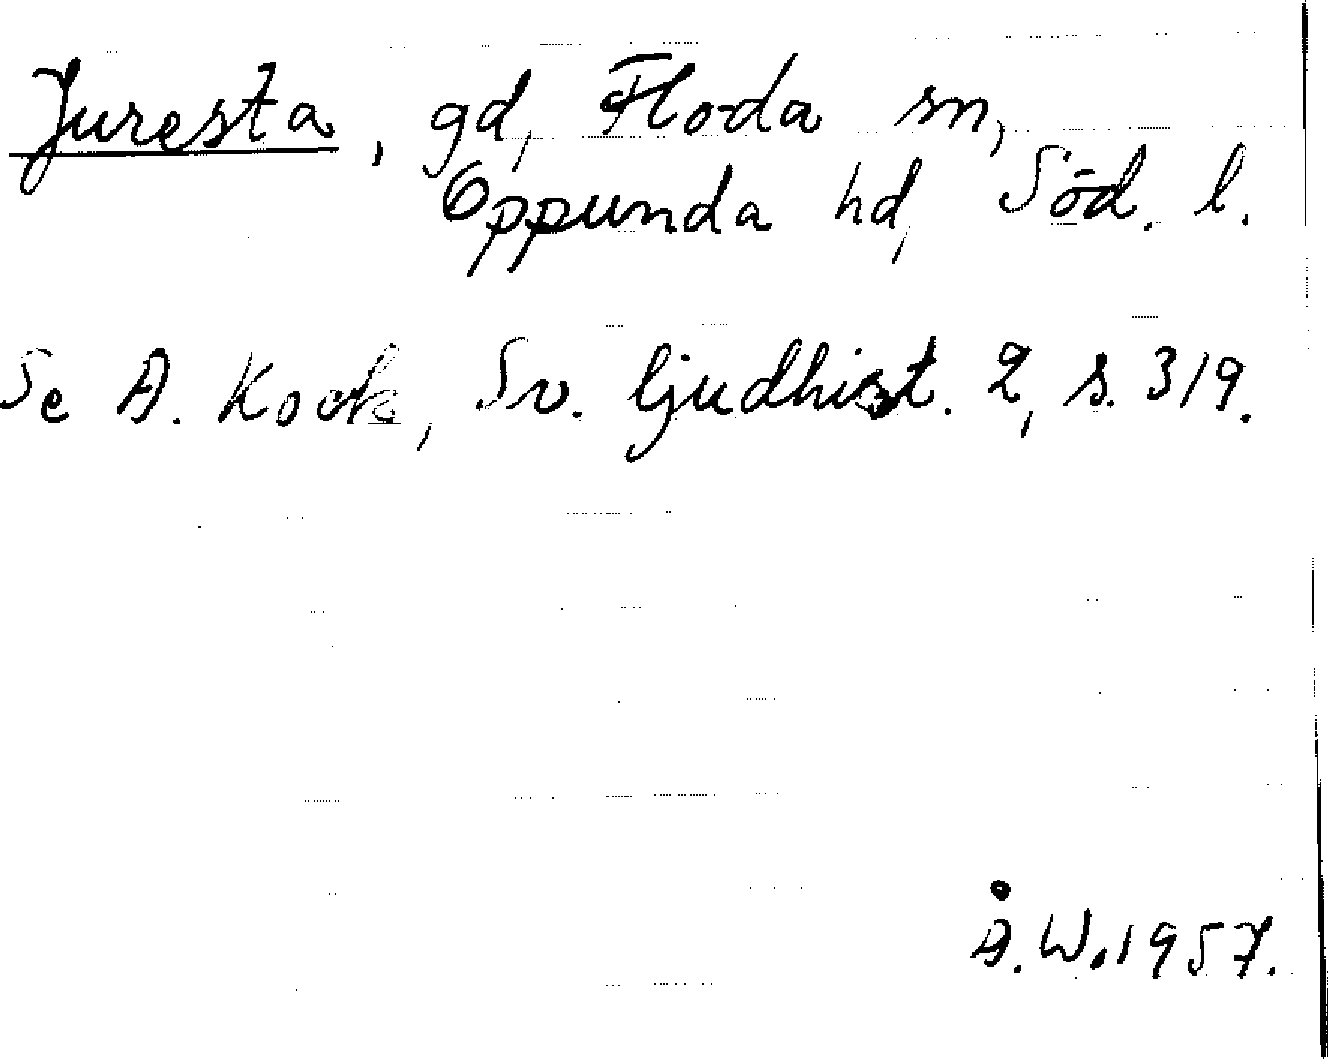 Juresta, gd, Floda sn,
Oppunda hd, Söd. l.
Se A. Kock, Sv. ljudhist. 2, s. 319.
Å.W. 1957.